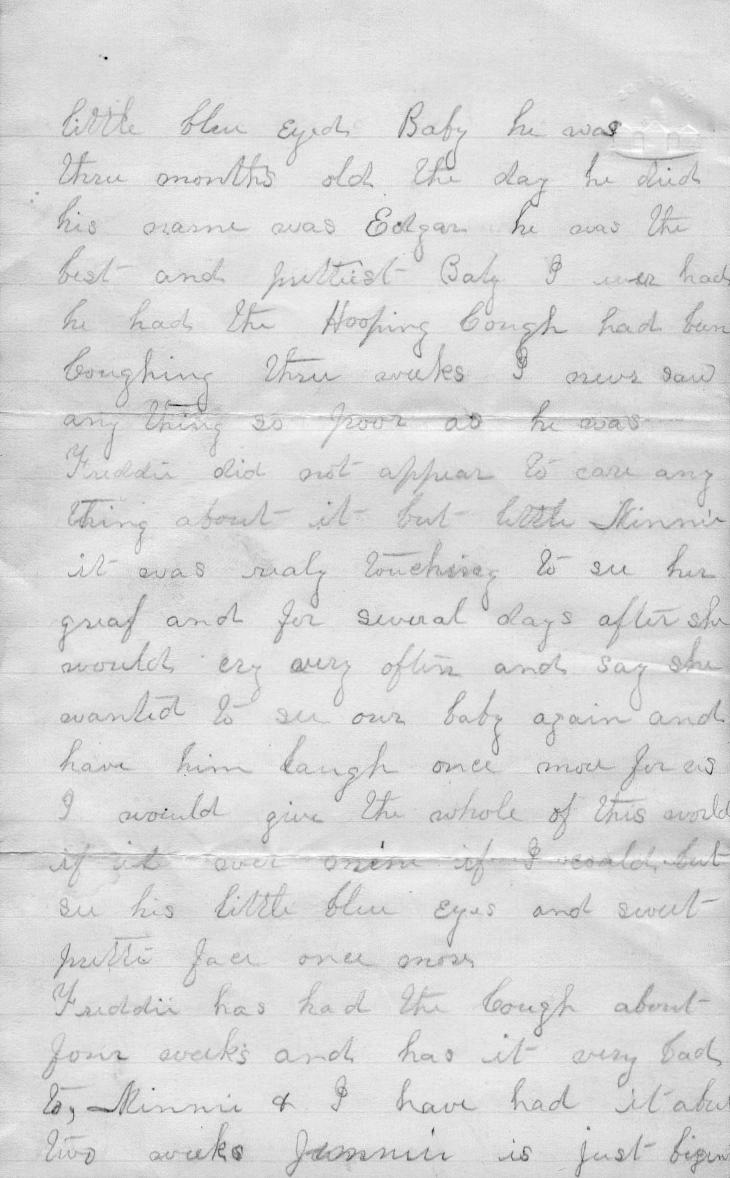 little blue Eyed Baby he was
three months old the day he died
his name was Edgar he was the
best and prettiest Baby I ever had
he had the Hooping Cough had been
Coughing three weeks I never saw
any thing so poor as he was
Freddie did not appear to care any
thing about it but little Minnie
it was realy touching to see her
greaf and for several days after she
would cry very often and say she
wanted to see our baby again and
have him laugh once more for us
I would give the whole of this world
if it wer mine if I could but
see his little blue eyes and sweet
prettie face once more
Freddie has had the Cough about
four weeks and has it very bad
to, Minnie & I have had it about
two weeks Jennie is just begin